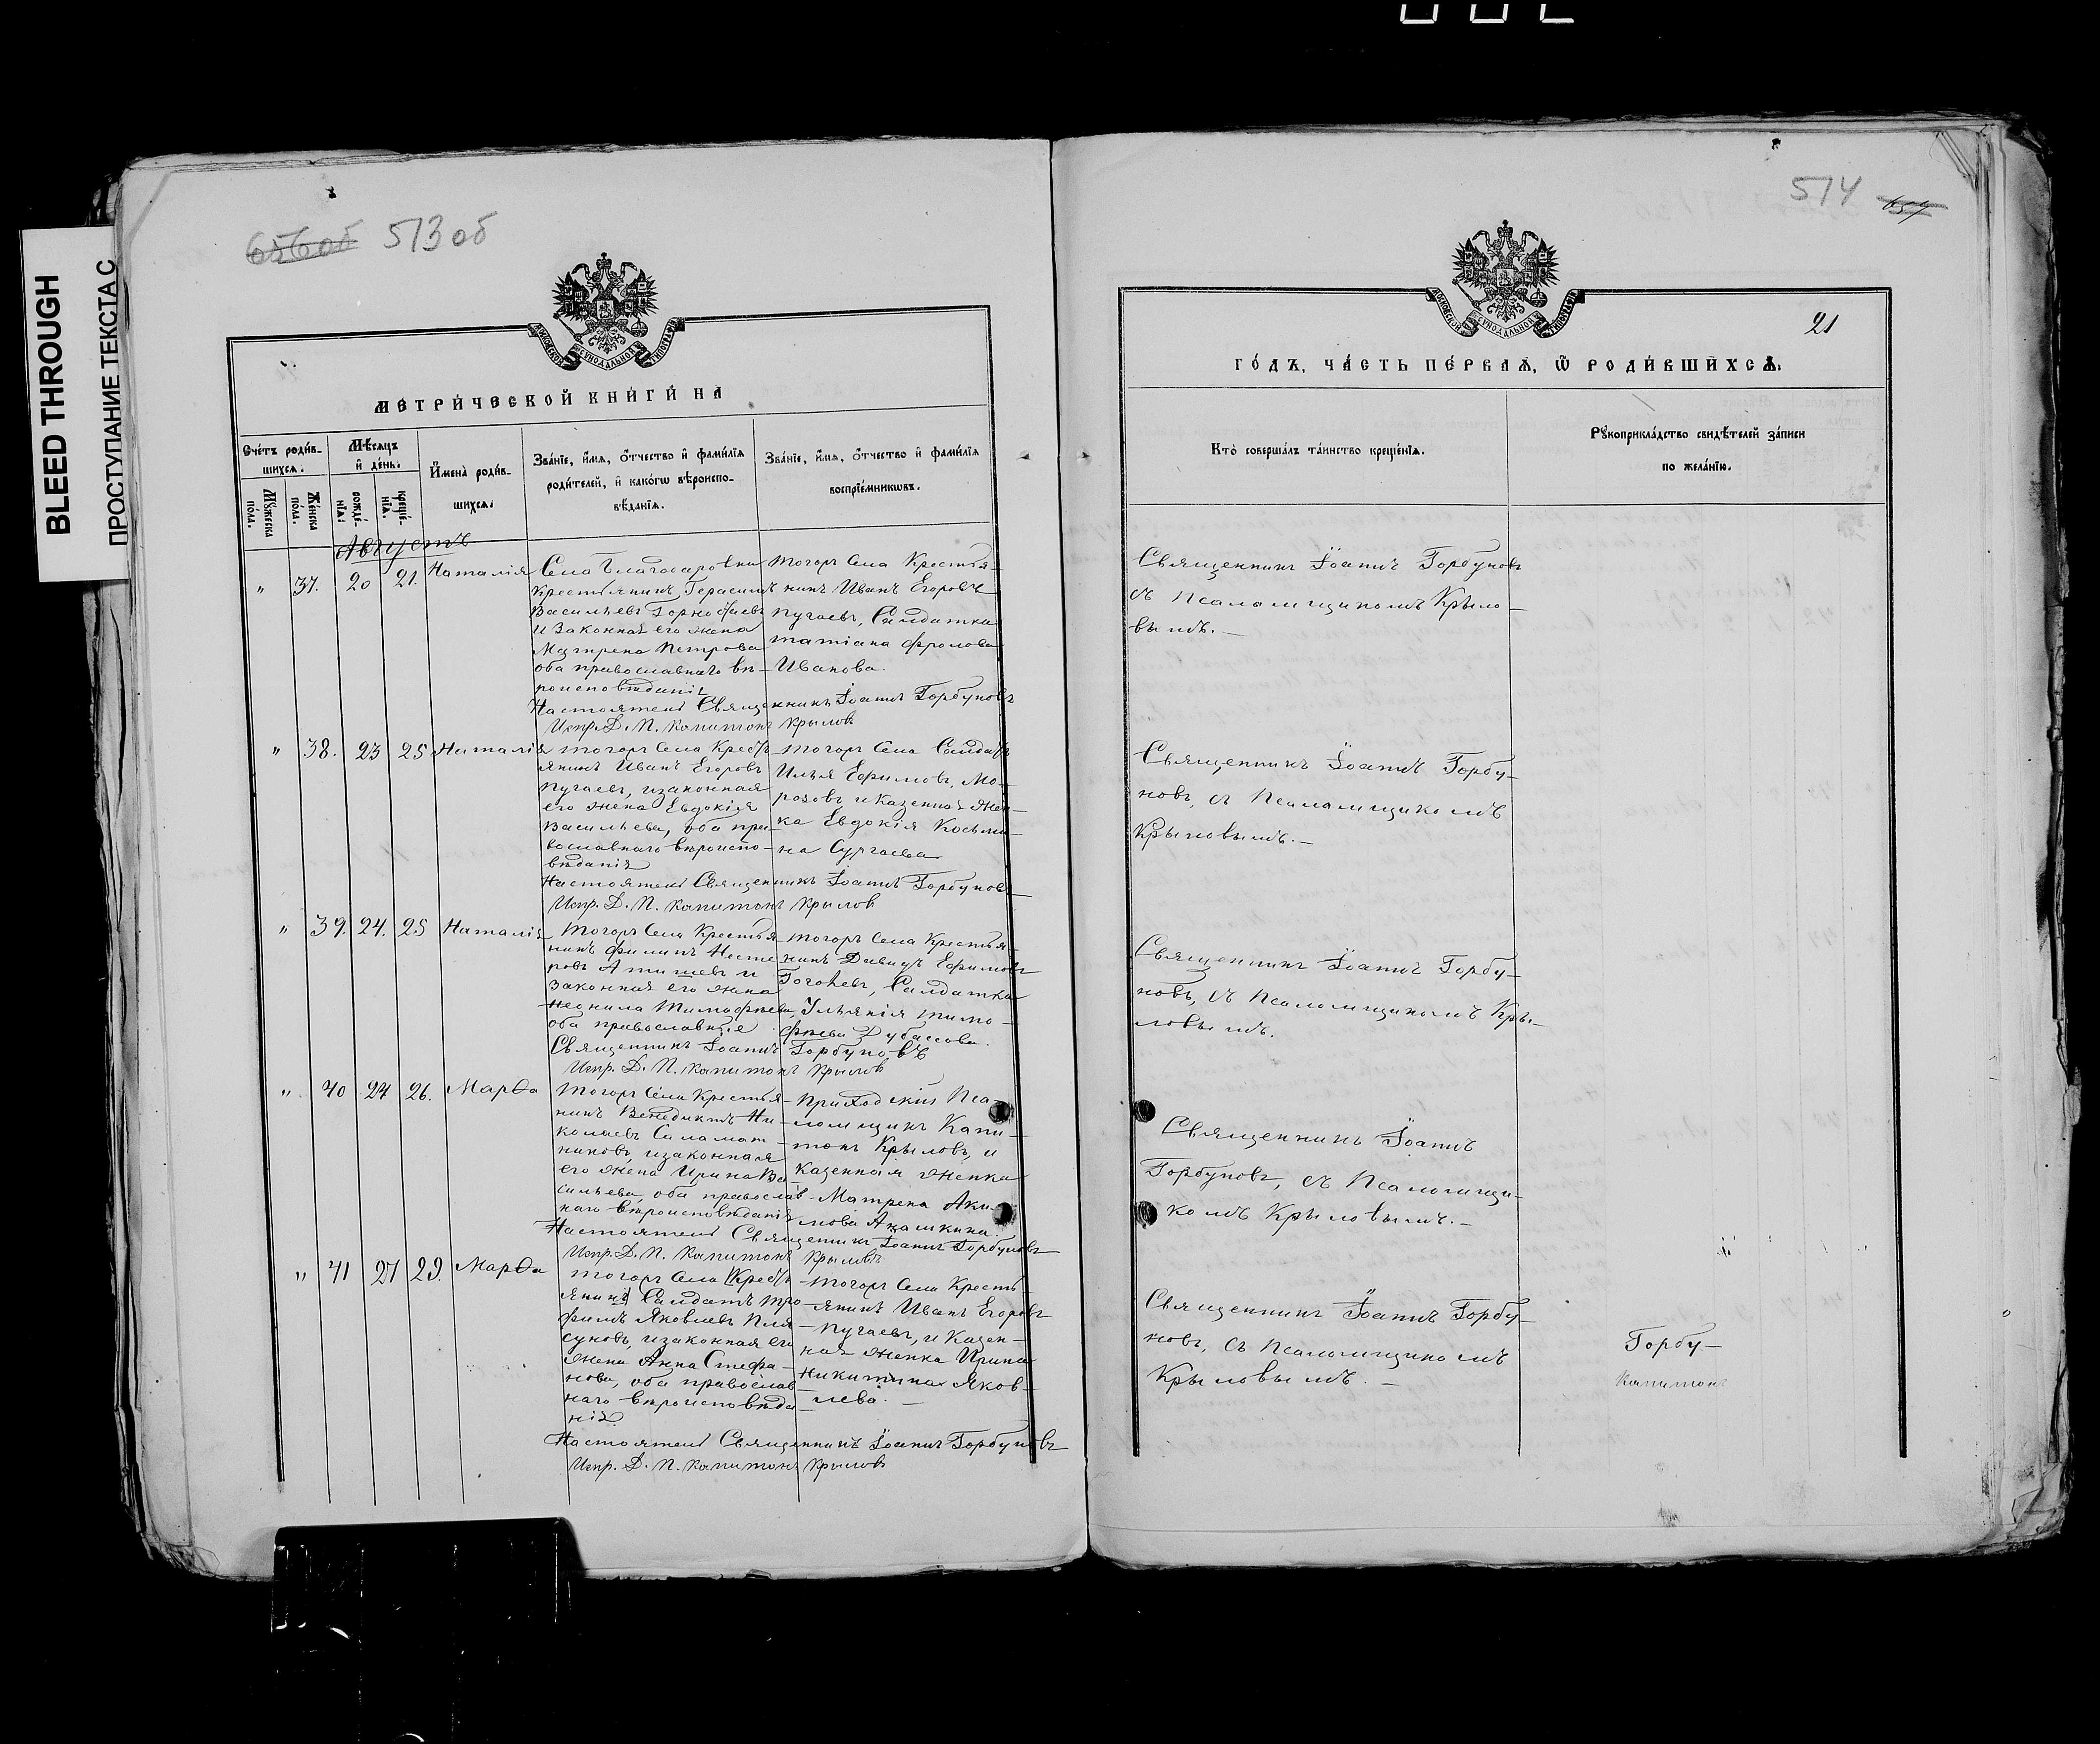 BLEED THROUGH
ПРОСТУПАНИЕ ТЕКСТА С
656об 513об
МЕТРИ́ЧЕСКОЙ КНИ́ГИ НА
Сче́тъ роди́в-
шихсѧ.
Мѣ́сѧцъ
и҆ де́нь.
И҆мена̀ роди́в-
шихсѧ.
Зва́нїе, и҆́мѧ, ѻ҆́тчество и҆ фами́лїѧ
роди́телей, и҆ како́гѡ вѣроиспо-
вѣ́данїѧ.
Зва́нїе, и҆́мѧ, ѻ҆́тчество и҆ фами́лїѧ
воспрїе́мникѡвъ.
Мꙋ́жеска
по́ла.
Же́нска
по́ла.
рожде́-
нїѧ.
креще́-
нїѧ.
МОСКОВСКОЙ СѴНОДАЛЬНОЙ ТИПОГРАФІИ
Августъ
" 37. 20 21. Наталія
Села
Крестьянинъ Герасимъ
Васильевъ
и Законная его жена
Матрена Петрова
оба православнаго вѣ-
роисповѣданія
тогожъ Села Крестья-
нинъ Иванъ Егоровъ
Пугаевъ, Салдатка
татіана Фролова
Иванова.
Настоятель Священникъ Іоаннъ Горбуновъ
Испр. Д. П. Капитонъ Крыловъ
" 38. 23 25 Наталія
тогожъ Села Кресть
янинъ Иванъ Егоровъ
Пугаевъ, и законная
его жена Евдокія
Васильева, оба пра-
вославнаго вѣроиспо-
вѣданія
тогожъ Села Салдатъ
Илья Ефимовъ, Мо-
розовъ и Казенная Жен-
ка Евдокія Косьми-
на Сургаева
Настоятель Священникъ Іоаннъ Горбуновъ
Испр. Д. П. Капитонъ Крыловъ
" 39. 24. 25 Наталія
Тогожъ Села Крестья-
нинъ Филипъ Несте
ровъ и
законная его жена
Неонила Тимофѣева,
оба православные
тогожъ Села Крестья-
нинъ Давидъ Ефимовъ
Салдатка
Ульянія Тимо-
фѣева Дубасова.
Священникъ Іоаннъ Горбуновъ
Испр. Д. П. Капитонъ Крыловъ
". 40 24 26. Марѳа
Тогожъ Села Крестья-
нинъ Венедиктъ Ни-
колаевъ Саламат-
никовъ, и законная
его жена Ирина Ва-
сильева, оба православ-
наго вѣроисповѣданія
Приходскій Пса-
ломщикъ Капи-
тонъ Крыловъ, и
Казенная Женка
Матрена Аки-
мова Акашкина.
Настоятель Священникъ Іоаннъ Горбуновъ
Испр. Д. П. Капитонъ Крыловъ
" 41 27 29. Марѳа
тогожъ Села Кресть
янинъ Салдатъ Тро
фимъ Яковлевъ Пля
суновъ, и законная его
жена Анна Стефа-
нова, оба православ
наго вѣроисповѣда
нія
тогожъ Села Кресть
янинъ Иванъ Егоровъ
Пугаевъ, и Казен-
ная Женка Ирина
Никитина Яков-
лева.
Настоятель Священникъ Іоаннъ Горбуновъ
Испр. Д. П. Капитонъ Крыловъ
514 657
МОСКОВСКОЙ СѴНОДАЛЬНОЙ ТИПОГРАФІИ
21
ГО́ДЪ, ЧА́СТЬ ПЕ́РВАѦ, Ѡ҆ РОДИ́ВШИХСѦ.
Кто̀ соверша́лъ та́инство креще́нїѧ.
Рꙋкоприкла́дство свидѣ́телей за́писи
по жела́нїю.
Священникъ Іоаннъ Горбуновъ
съ Псаломщикомъ Крыло-
вымъ.-
Священникъ Іоаннъ Горбу-
новъ, съ Псаломщикомъ
Крыловымъ.-
Священникъ Іоаннъ Горбу-
новъ, съ Псаломщикомъ Кры-
ловымъ.
Священникъ Іоаннъ
Горбуновъ, съ Псаломщи-
комъ Крыловымъ.-
Священникъ Іоаннъ Горбу-
новъ, съ Псаломщикомъ
Крыловымъ.-
Горбу-
Капитонъ